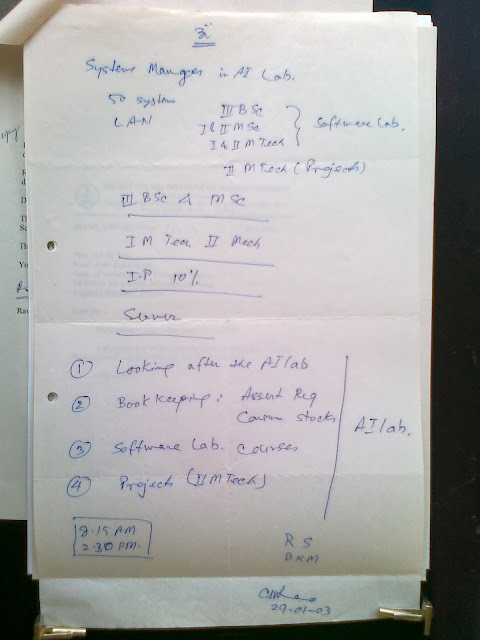 System Manager in AI Lab.
50 system
LAN
III BSc
I & II MSc
I & II M Tech
Software Lab.
II M Tech (Projects)
III BSc & MSc
I M Tech II Mech
I.P. 10%
Server
① Looking after the AI lab
② Book keeping: Assert Reg
Consum stocks
③ Software Lab. Courses
④ Projects (II M Tech)
AI lab.
8.15 AM
2.30 PM.
R S
BKM
29-01-03